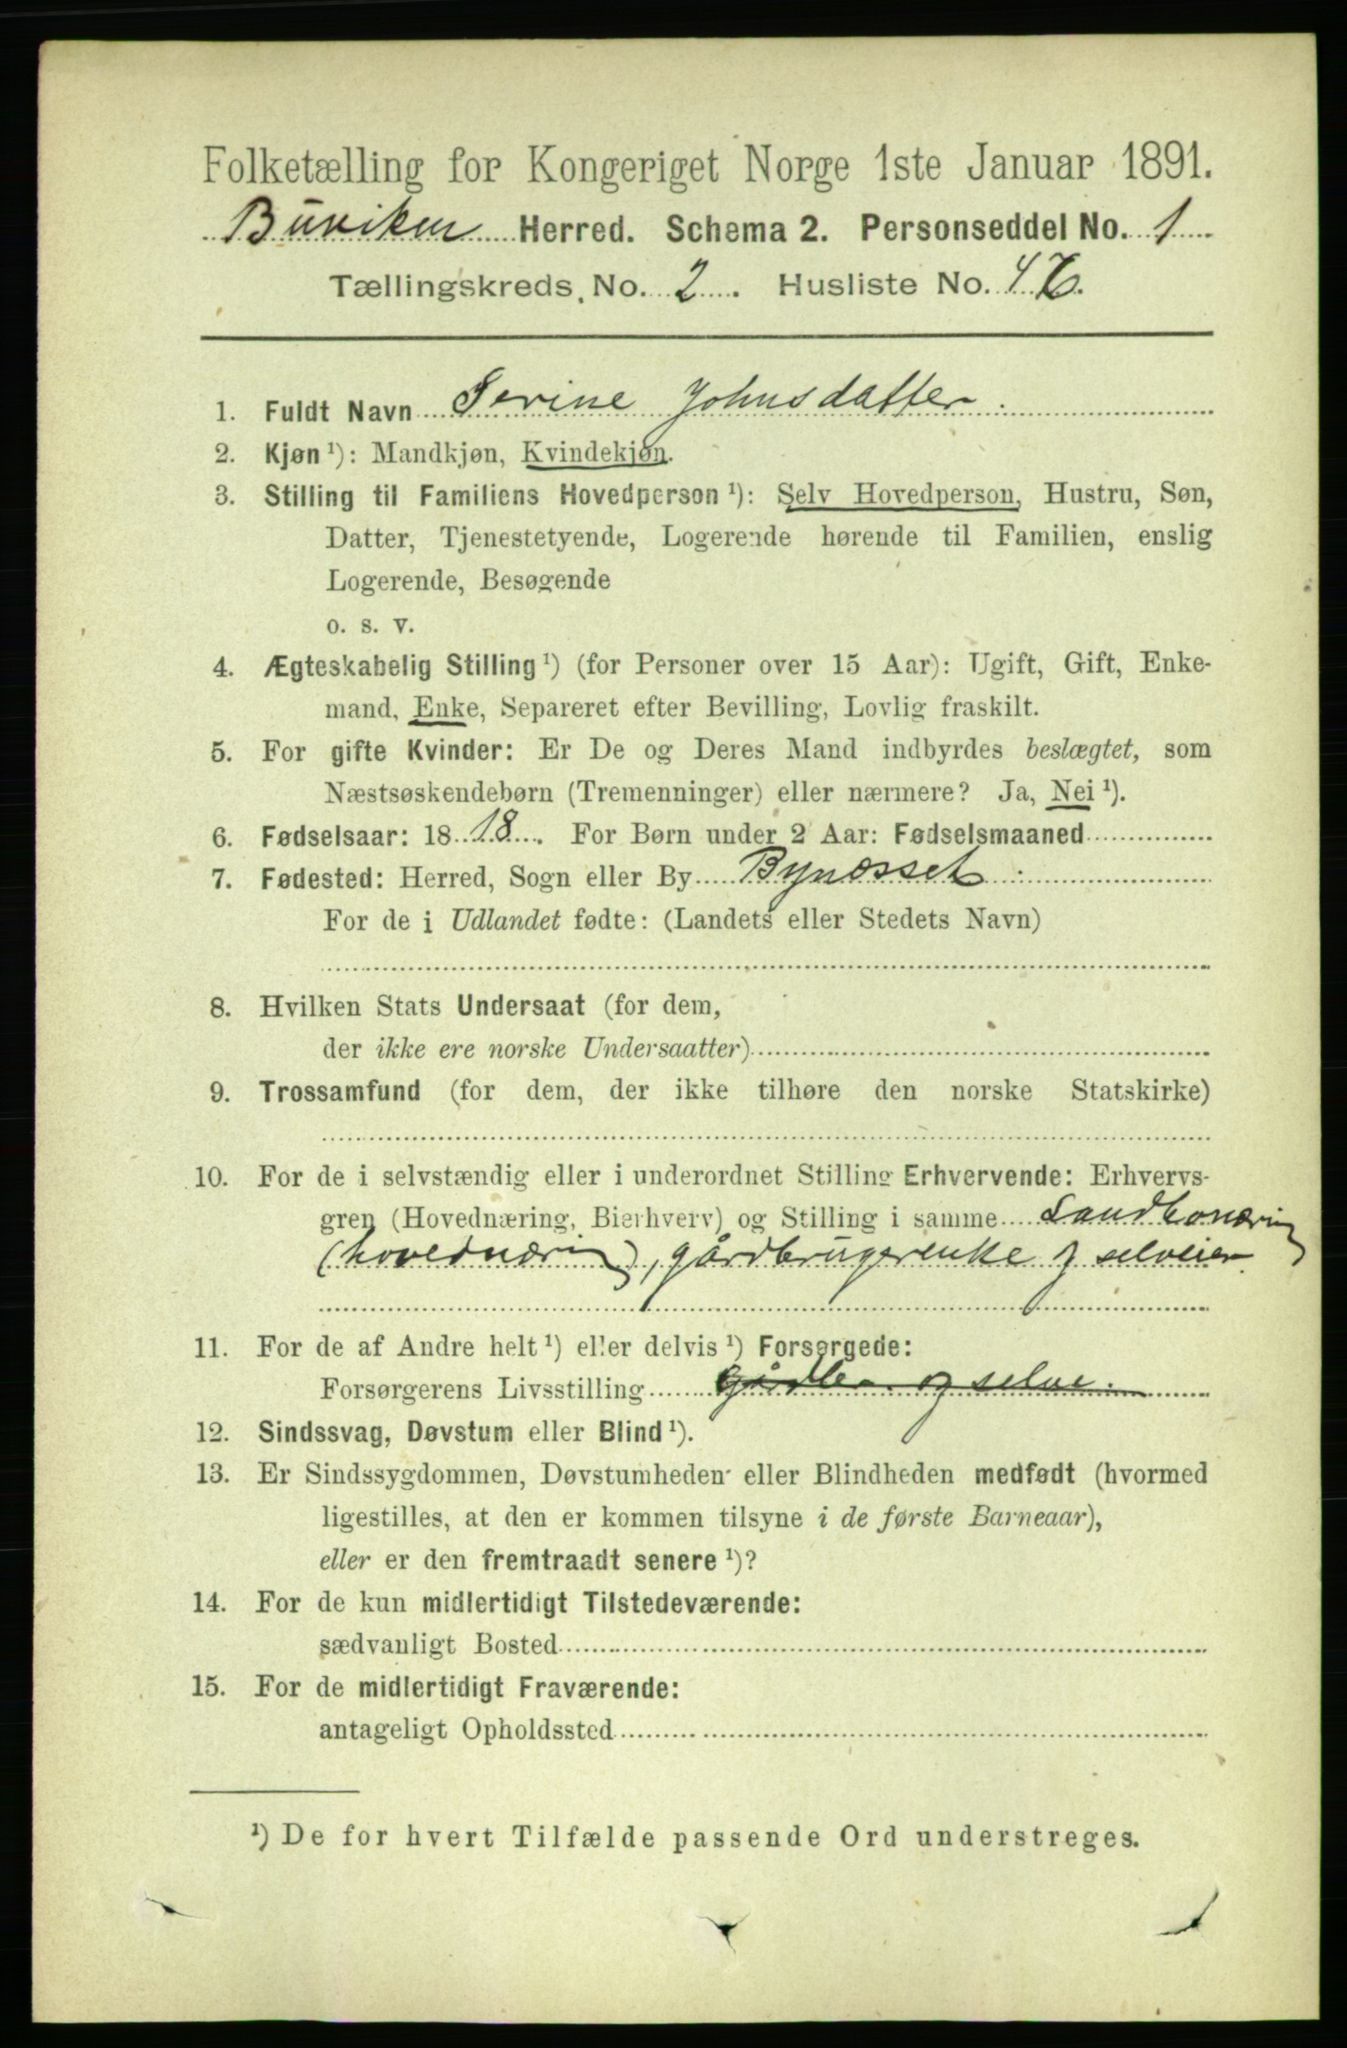 Folketælling for Kongeriget Norge 1ste Januar 1891.
Buviken Herred. Schema 2. Personseddel No. 1
Tællingskreds, No. 2. Husliste No. 46.
1. Fuldt Navn Serine Johnsdatter
2. Kjøn ¹): Mandkjøn, Kvindekjøn.
3. Stilling til Familiens Hovedperson ¹): Selv Hovedperson, Hustru, Søn,
Datter, Tjenestetyende, Logerende hørende til Familien, enslig
Logerende, Besøgende
o. s. v.
4. Ægteskabelig Stilling ¹) (for Personer over 15 Aar): Ugift, Gift, Enke-
mand, Enke, Separeret efter Bevilling, Lovlig fraskilt.
5. For gifte Kvinder: Er De og Deres Mand indbyrdes beslægtet, som
Næstsøskendebørn (Tremenninger) eller nærmere? Ja, Nei ¹).
6. Fødselsaar: 1818. For Børn under 2 Aar: Fødselsmaaned
7. Fødested: Herred, Sogn eller By Bynæsset
For de i Udlandet fødte: (Landets eller Stedets Navn)
8. Hvilken Stats Undersaat (for dem,
der ikke ere norske Undersaatter)
9. Trossamfund (for dem, der ikke tilhøre den norske Statskirke)
10. For de i selvstændig eller i underordnet Stilling Erhvervende: Erhvervs-
gren (Hovednæring, Bierhverv) og Stilling i samme Landbonæring
(hovednæring), gårdbrugerenke og selveier
11. For de af Andre helt ¹) eller delvis ¹) Forsørgede:
Forsørgerens Livsstilling gårdbr. og selve.
12. Sindssvag, Døvstum eller Blind ¹).
13. Er Sindssygdommen, Døvstumheden eller Blindheden medfødt (hvormed
ligestilles, at den er kommen tilsyne i de første Barneaar),
eller er den fremtraadt senere ¹)?
14. For de kun midlertidigt Tilstedeværende:
sædvanligt Bosted
15. For de midlertidigt Fraværende:
antageligt Opholdssted
¹) De for hvert Tilfælde passende Ord understreges.